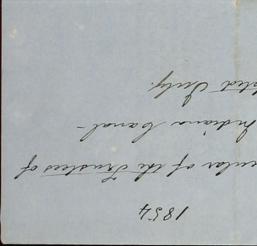 1854
cular of the Trustees of
Indiana Canal -
ated July.